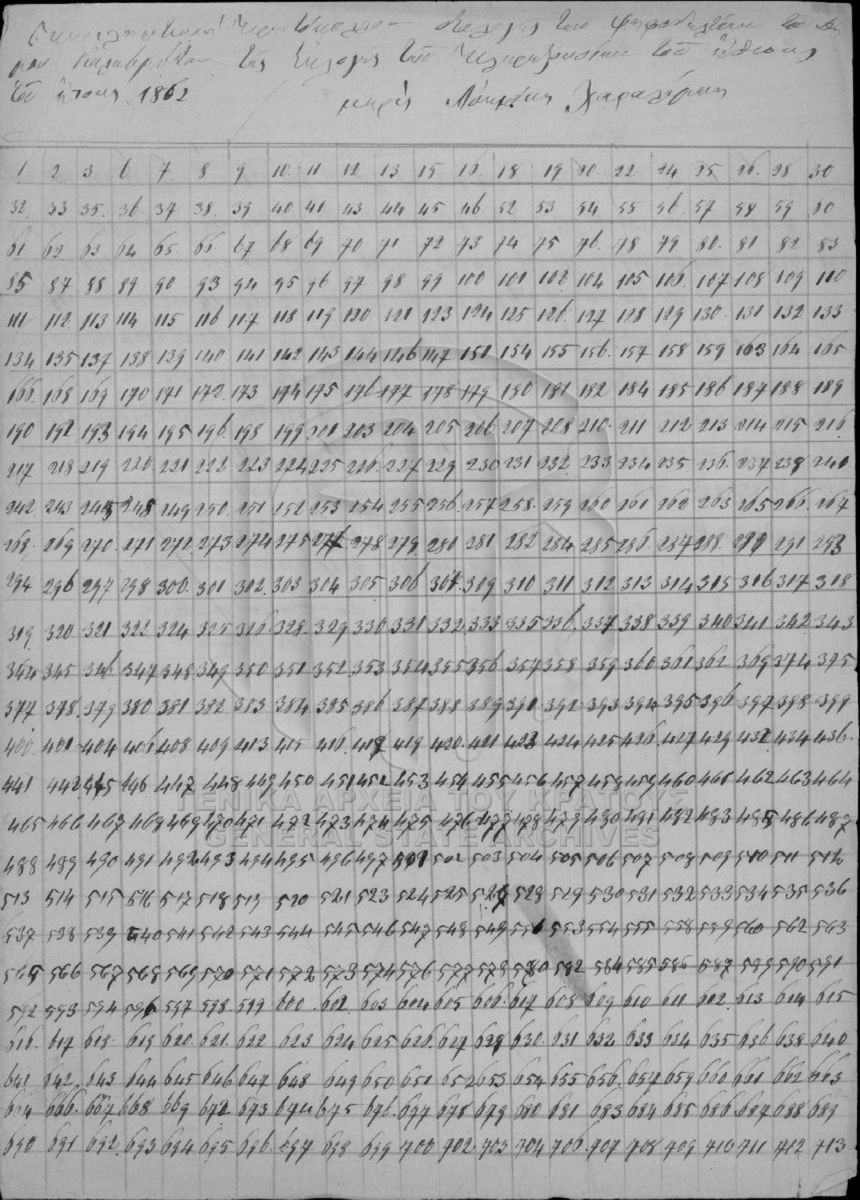 του
της Εκλογής του του
του έτους 1862
1 2 3 6 7 8 9 10 11 12 13 15 16 18 19 20 22 24 25 26 28 30
32 33 35 36 37 38 39 40 41 43 44 45 46 52 53 54 55 56 57 58 59 60
61 62 63 64 65 66 67 68 69 70 71 72 73 74 75 76 78 79 80 81 82 83
85 87 88 89 90 93 94 95 96 97 98 99 100 101 102 104 105 106 107 108 109 110
111 112 113 114 115 116 117 118 119 120 121 123 124 125 126 127 128 129 130 131 132 133
134 135 137 138 139 140 141 142 143 144 146 147 151 154 155 156 157 158 159 163 164 165
166 168 169 170 171 172 173 174 175 176 177 178 179 180 181 182 184 185 186 187 188 189
190 192 193 194 195 196 198 199 201 203 204 205 206 207 208 210 211 212 213 214 215 216
217 218 219 220 221 222 223 224 225 226 227 229 230 231 232 233 234 235 236 237 239 240
242 243 245 248 249 250 251 252 253 254 255 256 257 258 259 260 261 262 263 265 266 267
268 269 270 271 272 273 274 275 276 278 279 280 281 282 284 285 286 287 288 291 293
294 296 297 298 300 301 302 303 304 305 306 307 309 310 311 312 313 314 315 316 317 318
319 320 321 322 324 325 326 328 329 330 331 332 333 335 336 337 338 339 340 341 342 343
344 345 346 347 348 349 350 351 352 353 354 355 356 357 358 359 360 361 362 369 374 375
377 378 379 380 381 382 383 384 385 386 387 388 389 391 392 393 394 395 396 397 398 399
400 401 404 406 408 409 413 415 416 417 419 420 421 423 424 425 426 427 429 432 434 436
441 442 445 446 447 448 449 450 451 452 453 454 455 456 457 458 459 460 461 462 463 464
465 466 467 468 469 470 471 472 473 474 475 476 477 478 479 480 481 482 483 485 486 487
488 489 490 491 492 493 494 495 496 497 501 502 503 504 505 506 507 508 509 510 511 512
513 514 515 516 517 518 519 520 521 523 524 525 527 528 529 530 531 532 533 534 535 536
537 538 539 540 541 542 543 544 545 546 547 548 549 550 553 554 555 558 559 560 562 563
565 566 567 568 569 570 571 572 573 574 576 577 578 580 582 584 585 586 587 589 590 591
592 593 594 596 597 598 599 600 602 603 604 605 606 607 608 609 610 611 612 613 614 615
616 617 618 619 620 621 622 623 624 625 626 627 629 630 631 632 633 634 635 636 638 640
641 642 643 644 645 646 647 648 649 650 651 652 653 654 655 656 657 659 660 661 662 663
664 666 667 668 669 672 673 674 675 676 677 678 679 680 681 683 684 685 686 687 688 689
690 691 692 693 694 695 696 697 698 699 700 702 703 704 706 707 708 709 710 711 712 713
ΓΕΝΙΚΑ ΑΡΧΕΙΑ ΤΟΥ ΚΡΑΤΟΥΣ
GENERAL STATE ARCHIVES